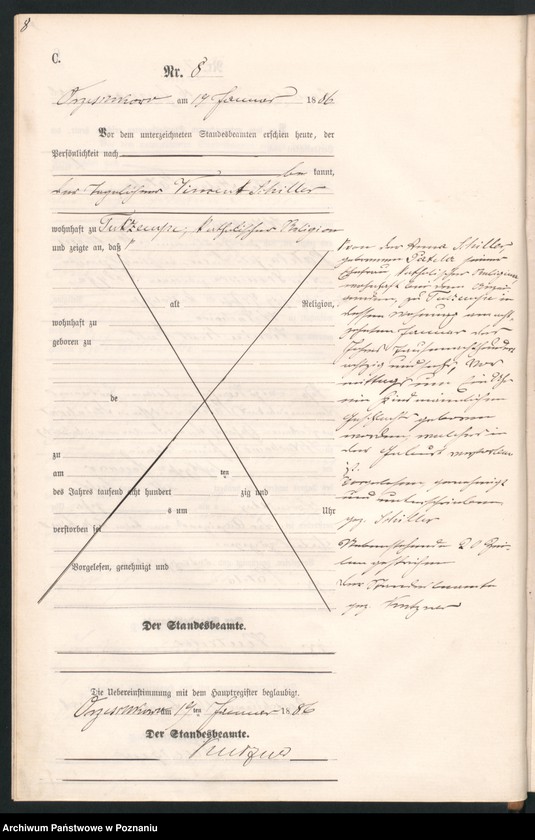 8
C.
Nr. 8
am 19 Januar 1886
Vor dem unterzeichneten Standesbeamten erschien heute, der
Persönlichkeit nach
be kannt,
der Tagelöhner Vincent Schiller
wohnhaft zu katholischer Religion
und zeigte an, daß
von der Anna Schiller
geborenen seiner
Ehefrau, katholischer Religion
wohnhaft bei dem
zu in
dessen Wohnung am acht-
zehnten Januar des
Jahres tausend achthundert
achtzig und sechs, Vor
mittags um Uhr
ein Kind männlichen
Geschlechts geboren
worden, welches in
der Geburt verstorben
ist.
Vorgelesen, genehmigt
und unterschrieben
gez. Schiller
Nebenstehende 20 Zei-
len gestrichen
der Standesbeamte
gez. Kutzner
alt Religion,
wohnhaft zu
geboren zu
de
zu
am ten
des Jahres tausend acht hundert zig und
s um Uhr
verstorben sei
Vorgelesen, genehmigt und
Der Standesbeamte.
Die Uebereinstimmung mit dem Hauptregister beglaubigt.
am 19 ten Januar 1886
Der Standesbeamte.
Kutzner
Archiwum Państwowe w Poznaniu